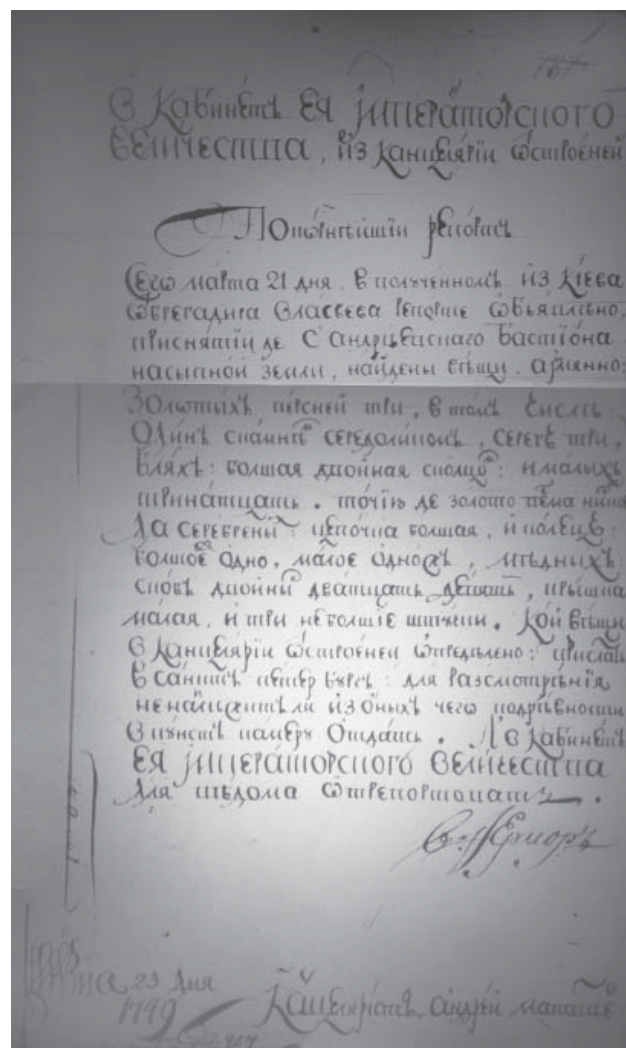 В Кабинетъ ЕЯ ІМПЕРАТОРСКОГО
ВЕЛИЧЕСТВА, ИЗ Канцелярїи ѿстроеней
Покорнѣйшїи репортъ
Сего марта 21 дня. в полученномъ ИЗ Кїева
ѿбрегадира Власьева репорте ѿбъявлено,
при снятїи де С андрѣевскаго бастїона
насыпной земли, найдены вѣщи. а имянно:
Золотыхъ перстней три, в томъ числѣ:
Одинъ скамнѣ середоликомъ, серегъ три,
бляхъ: болшая двойная
тринатцать. точїю де золото
Да серебреныхъ: цепочка болшая, и колецъ:
болшое одно, малое одно, мѣдныхъ:
двойныхъ дватцать девять, крышка
малая, и три неболшїе штучки. Кои вѣщи
в Канцелярїи ѿстроеней ѿпредѣлено: прислать
в санктъ петер бурхъ: для разсмотрѣнїя
не найдится ли из оныхъ чего подревности
в кунстъ камеру Отдать. И в Кабинетъ
ЕЯ ІМПЕРАТОРСКОГО ВЕЛИЧЕСТВА
для вѣдома ѿтрепортовать.
В. Ферморъ
марта 23 дня
1749
Канцеляристъ андрей